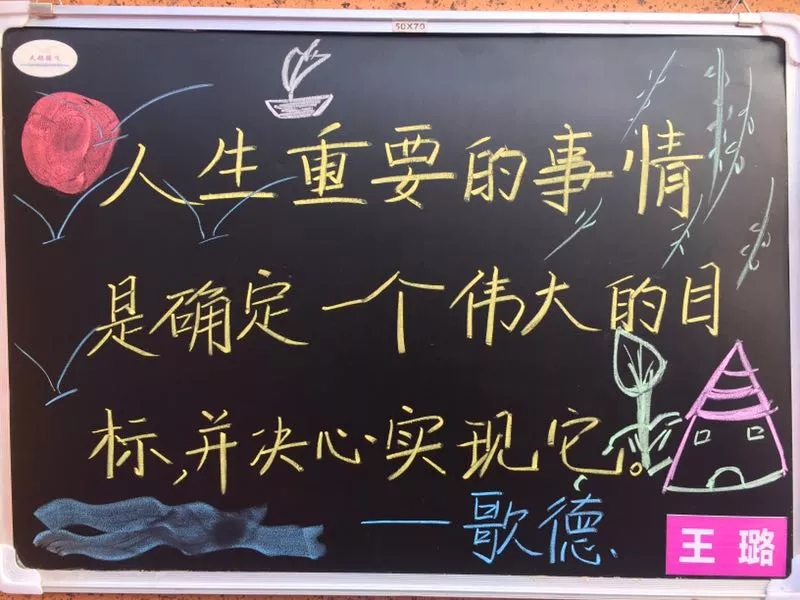 50X70
人生重要的事情
是确定一个伟大的目
标,并决心实现它。
——歌德
王璐